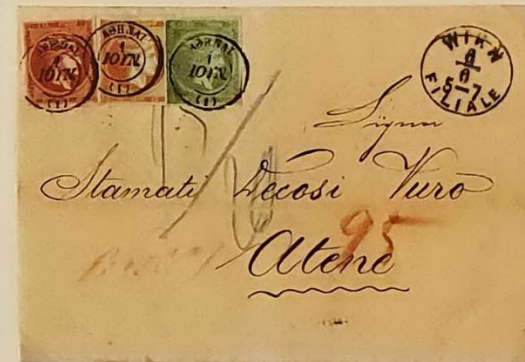 ΑΘΗΝΑΙ
1
ΙΟΥΝ.
(1)
ΑΘΗΝΑΙ
1
ΙΟΥΝ.
(1)
ΑΘΗΝΑΙ
1
ΙΟΥΝ.
(1)
WIEN
8
6
5-7
FILIALE
Signor
Stamati Décosi Vuro
95
Atene